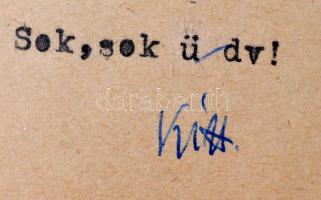 Sok, sok üdv!
darabanth
Kitt.